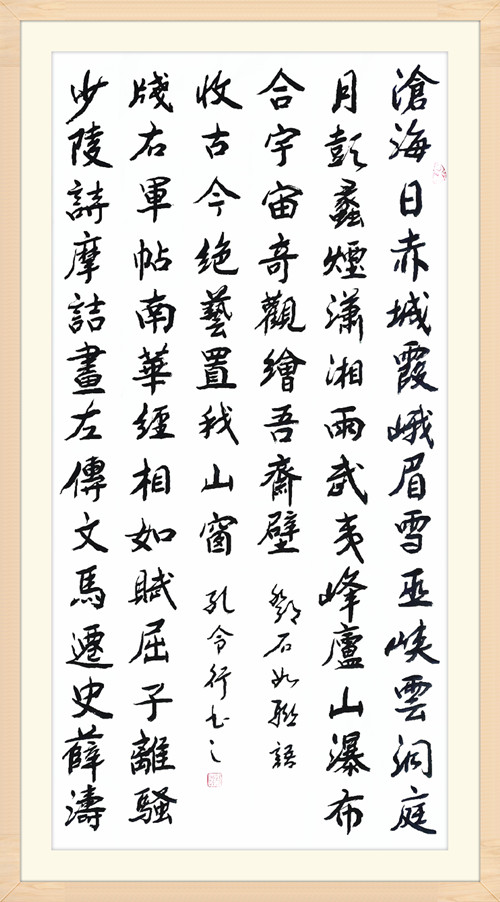 滄海日赤城霞峨眉雪巫峽雲洞庭
月彭蠡煙瀟湘雨武夷峰廬山瀑布
合宇宙奇觀繪吾齋壁
鄧石如聯語
少陵詩摩詰畫左傳文馬遷史薛濤
牋右軍帖南華經相如賦屈子離騷
收古今絶藝置我山窗
孔令行书之